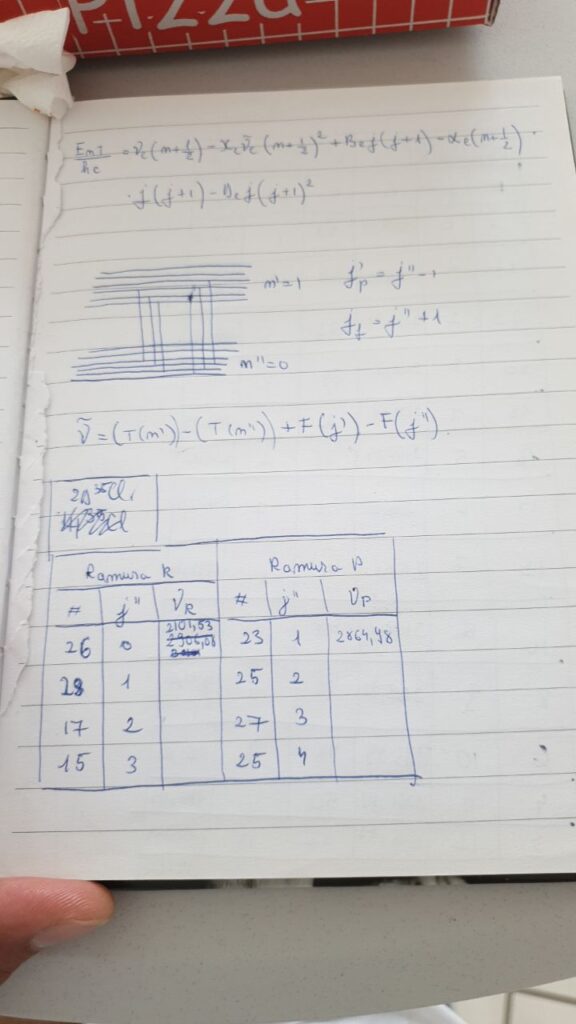 Pizza
EmJ/hc = ν̃e(m+1/2) - xe ν̃e(m+1/2)² + Be j(j+1) - αe(m+1/2) ·
· j(j+1) - De j(j+1)²
m'=1 j'p = j''-1
jf = j''+1
m''=0
ν̃ = (T(m')) - (T(m'')) + F(j') - F(j'').
2D 35Cl.
Ramura R Ramura P
# j'' ν̃R # j'' ν̃P
2101,53
26 0 2906,08 23 1 2864,98
28 1 25 2
17 2 27 3
15 3 25 4